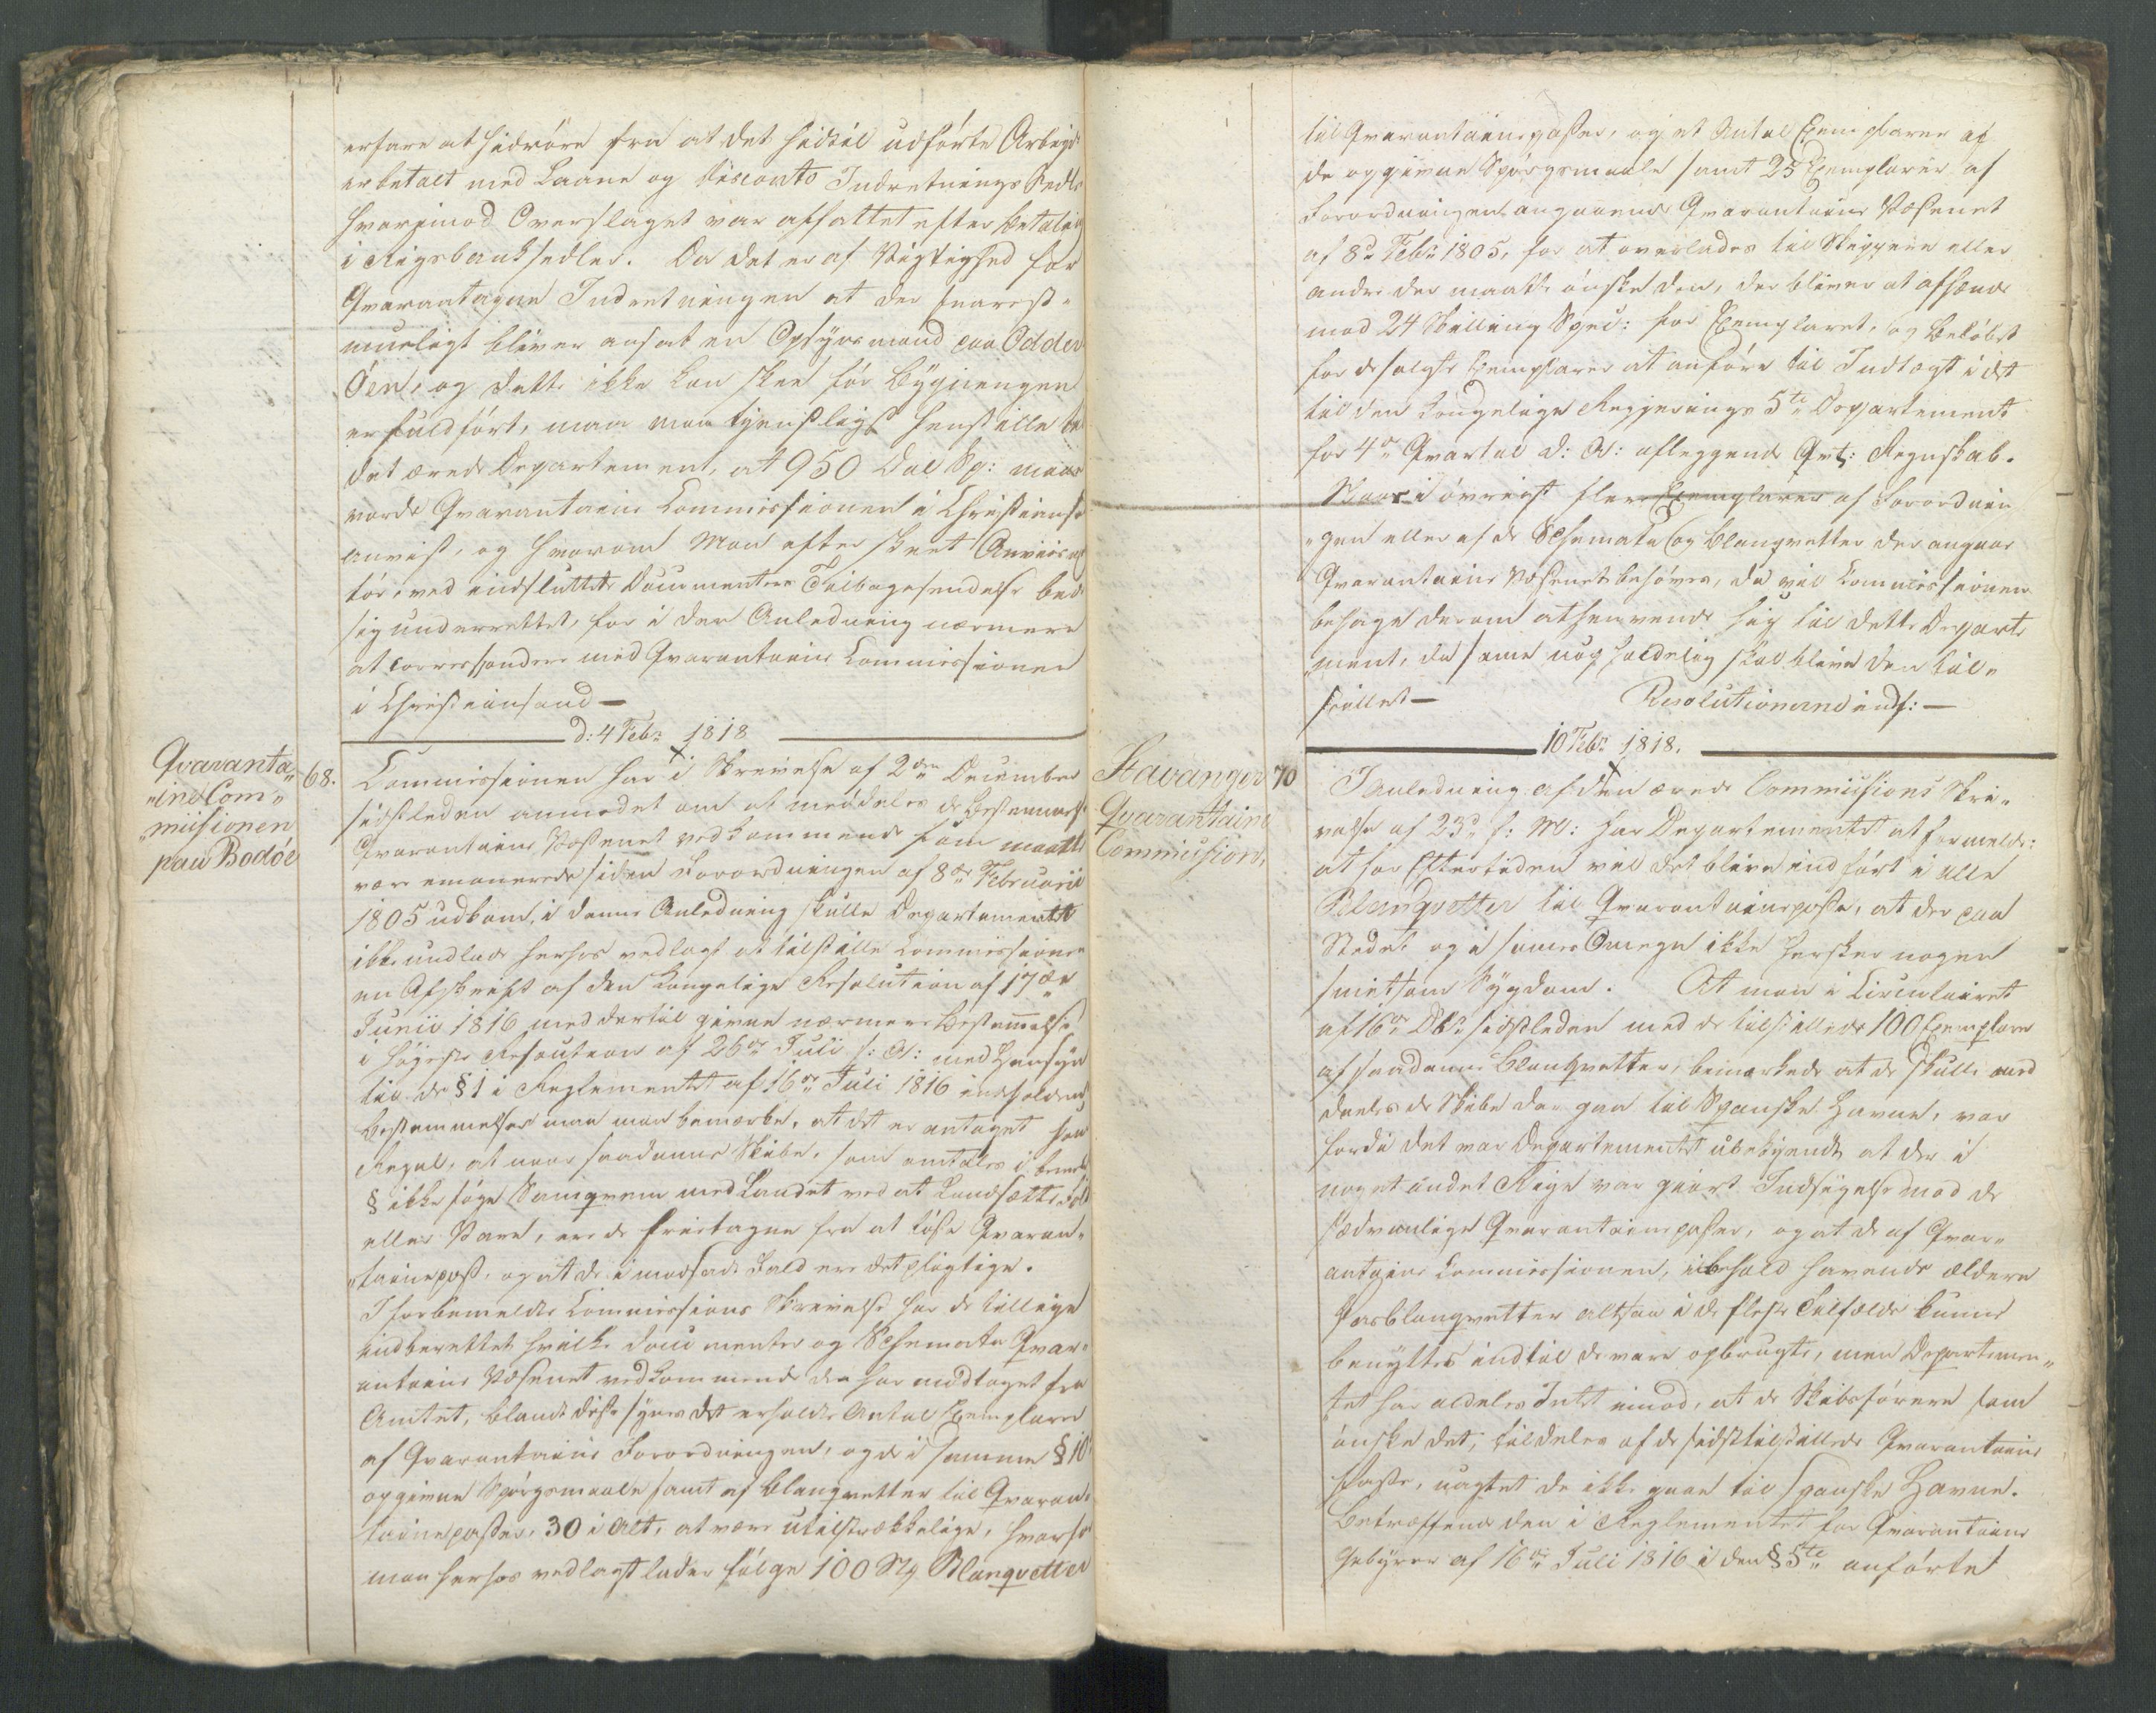 erfare at hidröre fra at det hidtil udförte Arbeyde
er betalt med Laane og Disconto Indretnings Sedler
hvorimod Overslaget var affattet efter Betaling
i Rigsbanksedler. Da det er af Vigtighed for
Qvarantaine Indretningen at der snarest-
mueligt bliver ansat en Opsynsmand paa Odder
Öen, og dette ikke kan skee för Bygningen
er fuldfört, maa man tjenstligst henstille til
det ærede Departement, at 950 Dal Sp: maatte
vorde Qvarantaine Commissionen i Christiansand
anvist, og hvorom Man efter skeet Anviisning
tör, ved indsluttede Documenters Tilbagesendelse bede
sig underrettet, for i den Anledning nærmere
at correspondere med Qvarantaine Commissionen
i Christiansand —
d: 4 Febr: 1818
Qvaranta„
„ine Com„
„missionen
paa Bodöe
68.
Commissionen har i Skrivelse af 2den December
sidstleden anmodet om at meddeles de Bestemmelser
Qvarantaine Væsenet vedkommende som maatte
være emanerede siden Forordningen af 8de Februarii
1805 udkom, i denne Anledning skulle Departementet
ikke undlade herhos vedlagt at tilstille Commissionen
en Afskrift af den Kongelige Resolution af 17de
Junii 1816 med dertil givne nærmere Bestemmelse
i höyeste Resolution af 26de Juli s: A: med Hensyn
til de § 1 i Reglementet af 16de Juli 1816 indeholdende
Bestemmelser maa man bemærke, at det er antaget som
Regel, at naar saadanne Skibe, som omtales i bemeldte
§ ikke söge Samqvem med Landet ved at landsætte Folk
eller Vare, ere de fritagne fra at löse Qvaran„
„tainepass, og at de i modsat Fald ere det pligtige.
I forbemeldte Commissions Skrivelse har de tillige
indberettet hvilke Documenter og Schemata Qvar„
antaine Væsenet vedkommende den har modtaget fra
Amtet, blandt disse synes det erholdte Antal Exemplarer
af Qvarantaine Forordningen, og de i samme § 10
opgivne Spörgsmaale samt af Blanqvetter til Qvaran„
taine passer, 30 i Alt, at være utilstrækkelige, hvorfor
man herhos vedlagt lader fölge 100 Stk Blanqvetter
til Qvarantainepasser, og et Antal Exemplarer af
de opgivne Spörgsmaale samt 25 Exemplarer af
Forordningen angaaende Qvarantaine Væsenet
af 8de Febr: 1805, for at overlades til Skippere eller
andre der maatte önske den, der bliver at afhænde
mod 24 Skilling Spec: for Exemplaret, og Belöbet
for de solgte Exemplarer at anföre til Indtægt i det
til den Kongelige Regjerings 5te Departement
for 4de Qvartal d: A: aflæggende Qvt: Regnskab.
Naar i övrigt flere Exemplarer af Forordnin
„gen eller af de Schemata og Blanqvetter der angaaer
Qvarantaine Væsenet behöves, da vil Commissionen
behage derom at henvende sig til dette Departe
„ment, da samme uopholdelig skal blive den til„
stillet — Resolutionerne indf: —
10 Febr: 1818.
Stavanger
Qvarantaine
Commission,
70
I Anledning af den ærede Commissions Skri„
velse af 23de f: M: har Departementet at formelde:
at for Eftertiden vil det blive indfört i alle
Blanqvetter til Qvarantainepasse, at der paa
Stedet og i sammes Omegn ikke hersker nogen
smitsom Sygdom. At man i Circulairet
af 16de Dbr: sidstleden med de tilstillede 100 Exemplarer
af saadanne Blanqvetter, bemærkede at de skulle med
deeles de Skibe der gaa til Spanske Havne, var
fordi det var Departementet ubekjendt at der i
noget andet Rige var gjort Indsigelse mod de
sædvanlige Qvarantaine passer, og at de af Qvar„
antaine Commissionen, i behold havende ældere
Pasblanqvetter altsaa i de fleste Tilfælde kunne
benyttes indtil de vare opbrugte, men Departemen„
tet har aldeles Intet imod, at de Skibsförere som
önske det, tildeles af de sidst tilstillede Qvarantaine
Passe, uagtet de ikke gaae til spanske Havne.
Betræffende den i Reglementet for Qvarantaine
Gebyrer af 16de Juli 1816 i den § 5te anförte